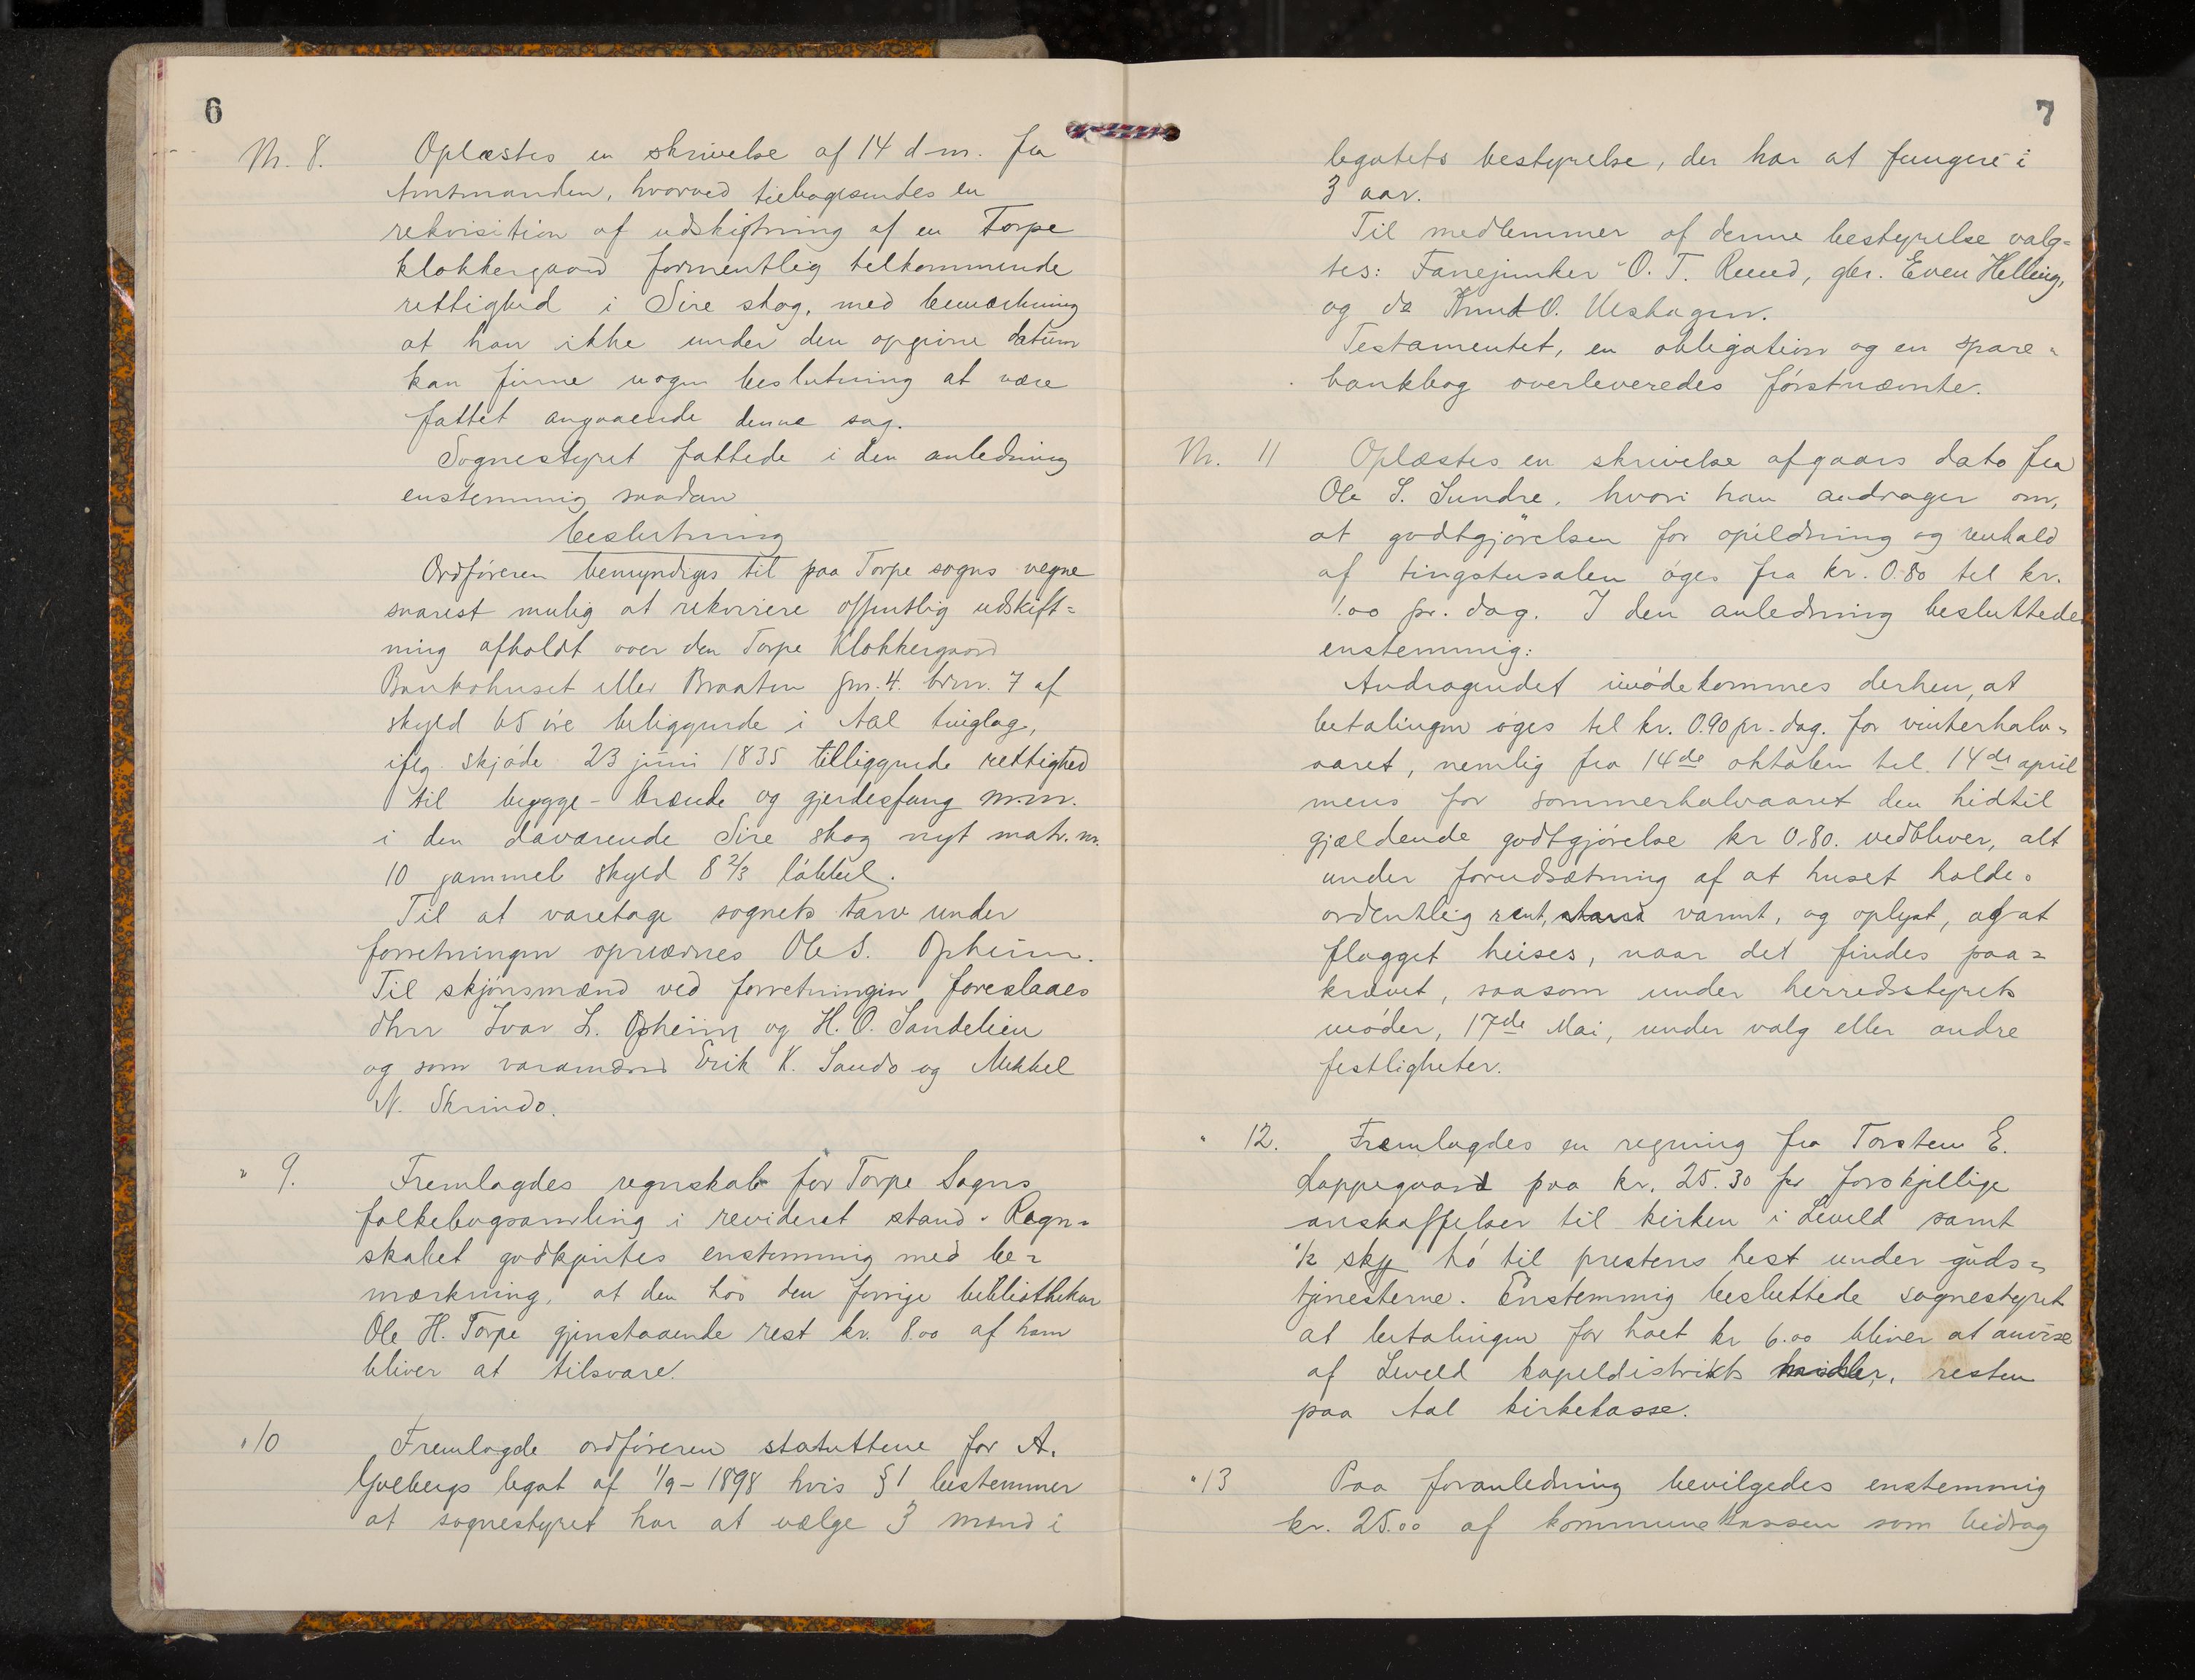 6
Nr. 8. Oplæstes en skrivelse af 14 d-m. fra
Amtmanden, hvorved tilbagesendes en
rekvisition af udskiftning af en Torpe
klokkergaard formentlig tilkommende
rettighed i Sire skog, med bemærkning
at han ikke under den opgivne datum
kan finne nogen beslutning at være
fattet angaaende denne sag.
Sognestyret fattede i den anledning
enstemmig saadan
beslutning
Ordføreren bemyndiges til paa Torpe sogns vegne
snarest mulig at rekvirere offentlig udskift=
ning afholdt over den Torpe Klokkergaard
Bankohuset eller Braaten gnr. 4. brnr. 7 af
skyld 65 øre beliggende i Aal tinglag,
iflg. skjøde 23 juni 1835 tilliggende rettighed
til bygge- brænde og gjerdesfang m.m.
i den daværende Sire skog nyt matr. nr.
10 gammel skyld 8 2/3 løbbel.
Til at varetage sognets tarv under
forretningen opnævnes Ole S. Opheim.
Til skjønsmænd ved forretningen foreslaaes
dhrr Ivar L. Opheim og H. O. Sandelien
og som varamænd Erik K. Sando og Mekkel
N. Skrindo.
" 9. Fremlagdes regnskab for Torpe Sogns
folkebogsamling i revideret stand. Regn=
skabet godkjentes enstemmig med be=
mærkning, at den hos den forrige bibliothekar
Ole H. Torpe gjenstaaende rest kr. 8.00 af ham
bliver at tilsvare.
" 10 Fremlagde ordføreren statuttene for A.
legat af 1/9 - 1898 hvis § 1 bestemmer
at sognestyret har at vælge 3 mænd i
7
legatets bestyrelse, der har at fungere i
3 aar.
Til medlemmer af denne bestyrelse valg=
tes: Fanejunker O. T. Ruud, gbr. Even Helling,
og do Knut O. Vestagen.
Testamentet, en obligation og en spare=
bankbog overleveredes førstnævnte.
Nr. 11 Oplæstes en skrivelse af gaars dato fra
Ole S. Sundre, hvori han andrager om,
at godtgjørelsen for opildning og renhold
af tingstusalen øges fra kr. 0.80 til kr.
1.00 pr. dag. I den anledning besluttedes
enstemmig:
Andragendet imødekommes derhen, at
betalingen øges til kr. 0.90 pr. dag. for vinterhalv=
aaret, nemlig fra 14de oktober til 14de april
mens for sommerhalvaaret den hidtil
gjældende godtgjørelse kr 0.80. vedbliver, alt
under forudsætning af at huset holdes
ordentlig rent, varmt, og oplyst, og at
flagget heises, naar det findes paa=
krævet, saasom under herredsstyrets
møder, 17de Mai, under valg eller andre
festligheter.
" 12. Fremlagdes en regning fra Torsten E.
Lappegaard paa kr. 25.30 for forskjellige
anskaffelser til kirken i Leveld samt
1/2 skp hø til prestens hest under guds=
tjenesterne. Enstemmig besluttede sognestyret
at betalingen for høet kr 6.00 bliver at anvise
af Leveld kapeldistrikts midler, resten
paa Aal kirkekasse.
" 13 Paa foranledning bevilgedes enstemmig
kr. 25.00 af kommunekassen som bidrag